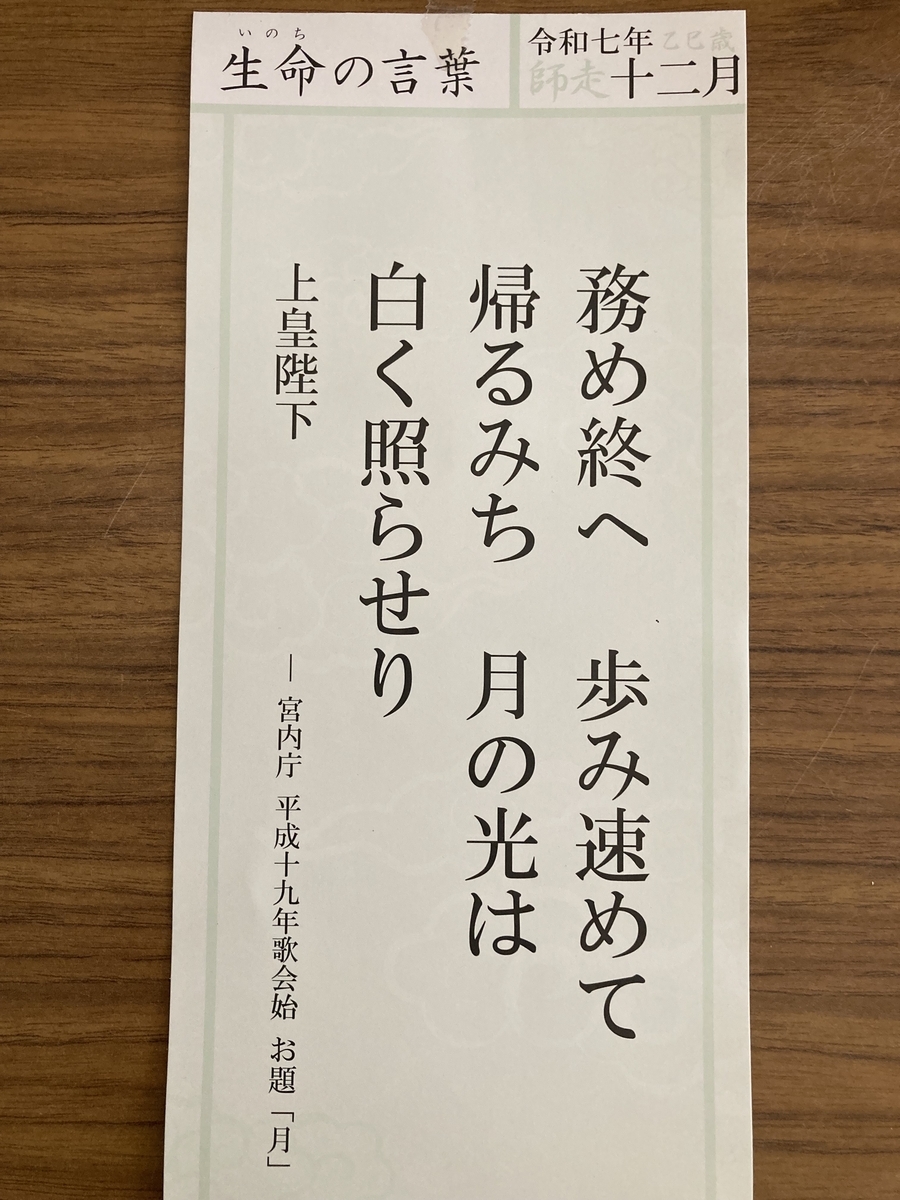 いのち
生命の言葉
令和七年 乙巳歳
師走十二月
務め終へ 歩み速めて
帰るみち 月の光は
白く照らせり
上皇陛下
― 宮内庁 平成十九年歌会始 お題「月」